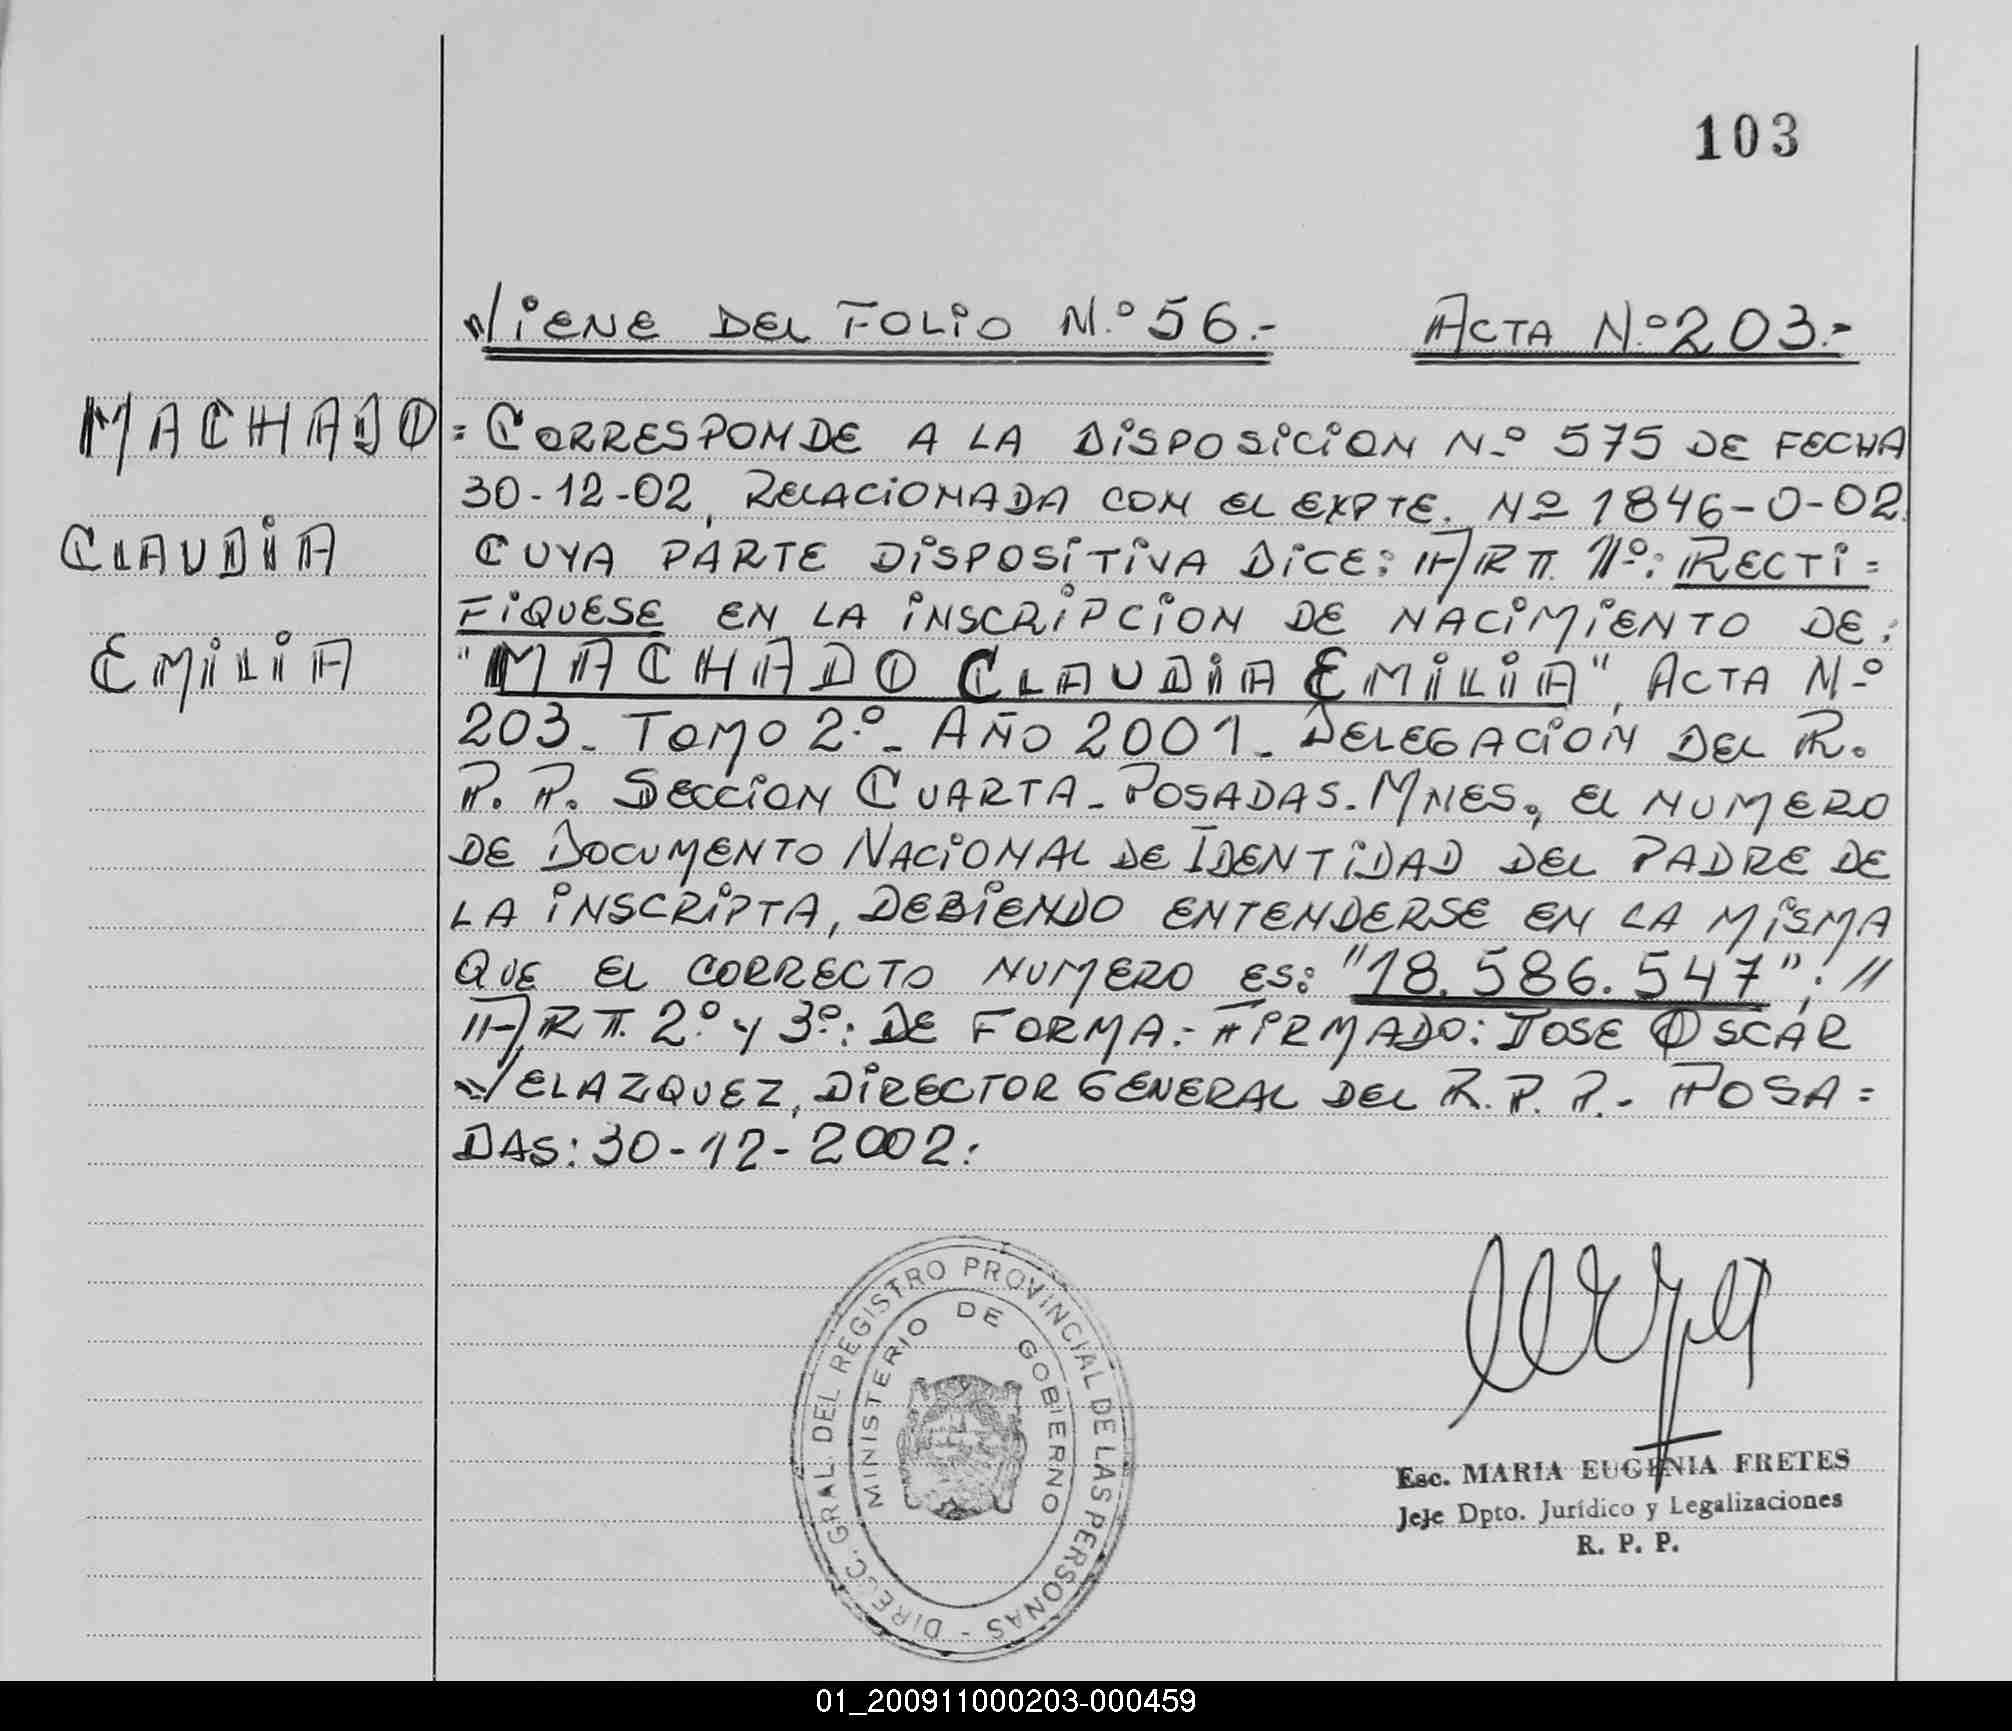 103
VIENE DEL FOLIO N.º 56.- ACTA Nº 203.-
MACHADO
CLAUDIA
EMILIA
= CORRESPONDE A LA DISPOSICION Nº 575 DE FECHA
30-12-02, RELACIONADA CON EL EXPTE. Nº 1846-0-02.
CUYA PARTE DISPOSITIVA DICE: ART. 1º: RECTI=
FIQUESE EN LA INSCRIPCION DE NACIMIENTO DE:
"MACHADO CLAUDIA EMILIA", ACTA Nº
203. TOMO 2º- AÑO 2001- DELEGACION DEL R.
P. P. SECCION CUARTA- POSADAS. MNES., EL NUMERO
DE DOCUMENTO NACIONAL DE IDENTIDAD DEL PADRE DE
LA INSCRIPTA, DEBIENDO ENTENDERSE EN LA MISMA
QUE EL CORRECTO NUMERO ES: "18.586.547"; //
ART. 2º Y 3º: DE FORMA.- FIRMADO: JOSE OSCAR
VELAZQUEZ, DIRECTOR GENERAL DEL R. P. P.- POSA=
DAS: 30-12-2002.
DIRECC. GRAL. DEL REGISTRO PROVINCIAL DE LAS PERSONAS -
MINISTERIO DE GOBIERNO
Esc. MARIA EUGENIA FRETES
Jefe Dpto. Jurídico y Legalizaciones
R. P. P.
01_200911000203-000459